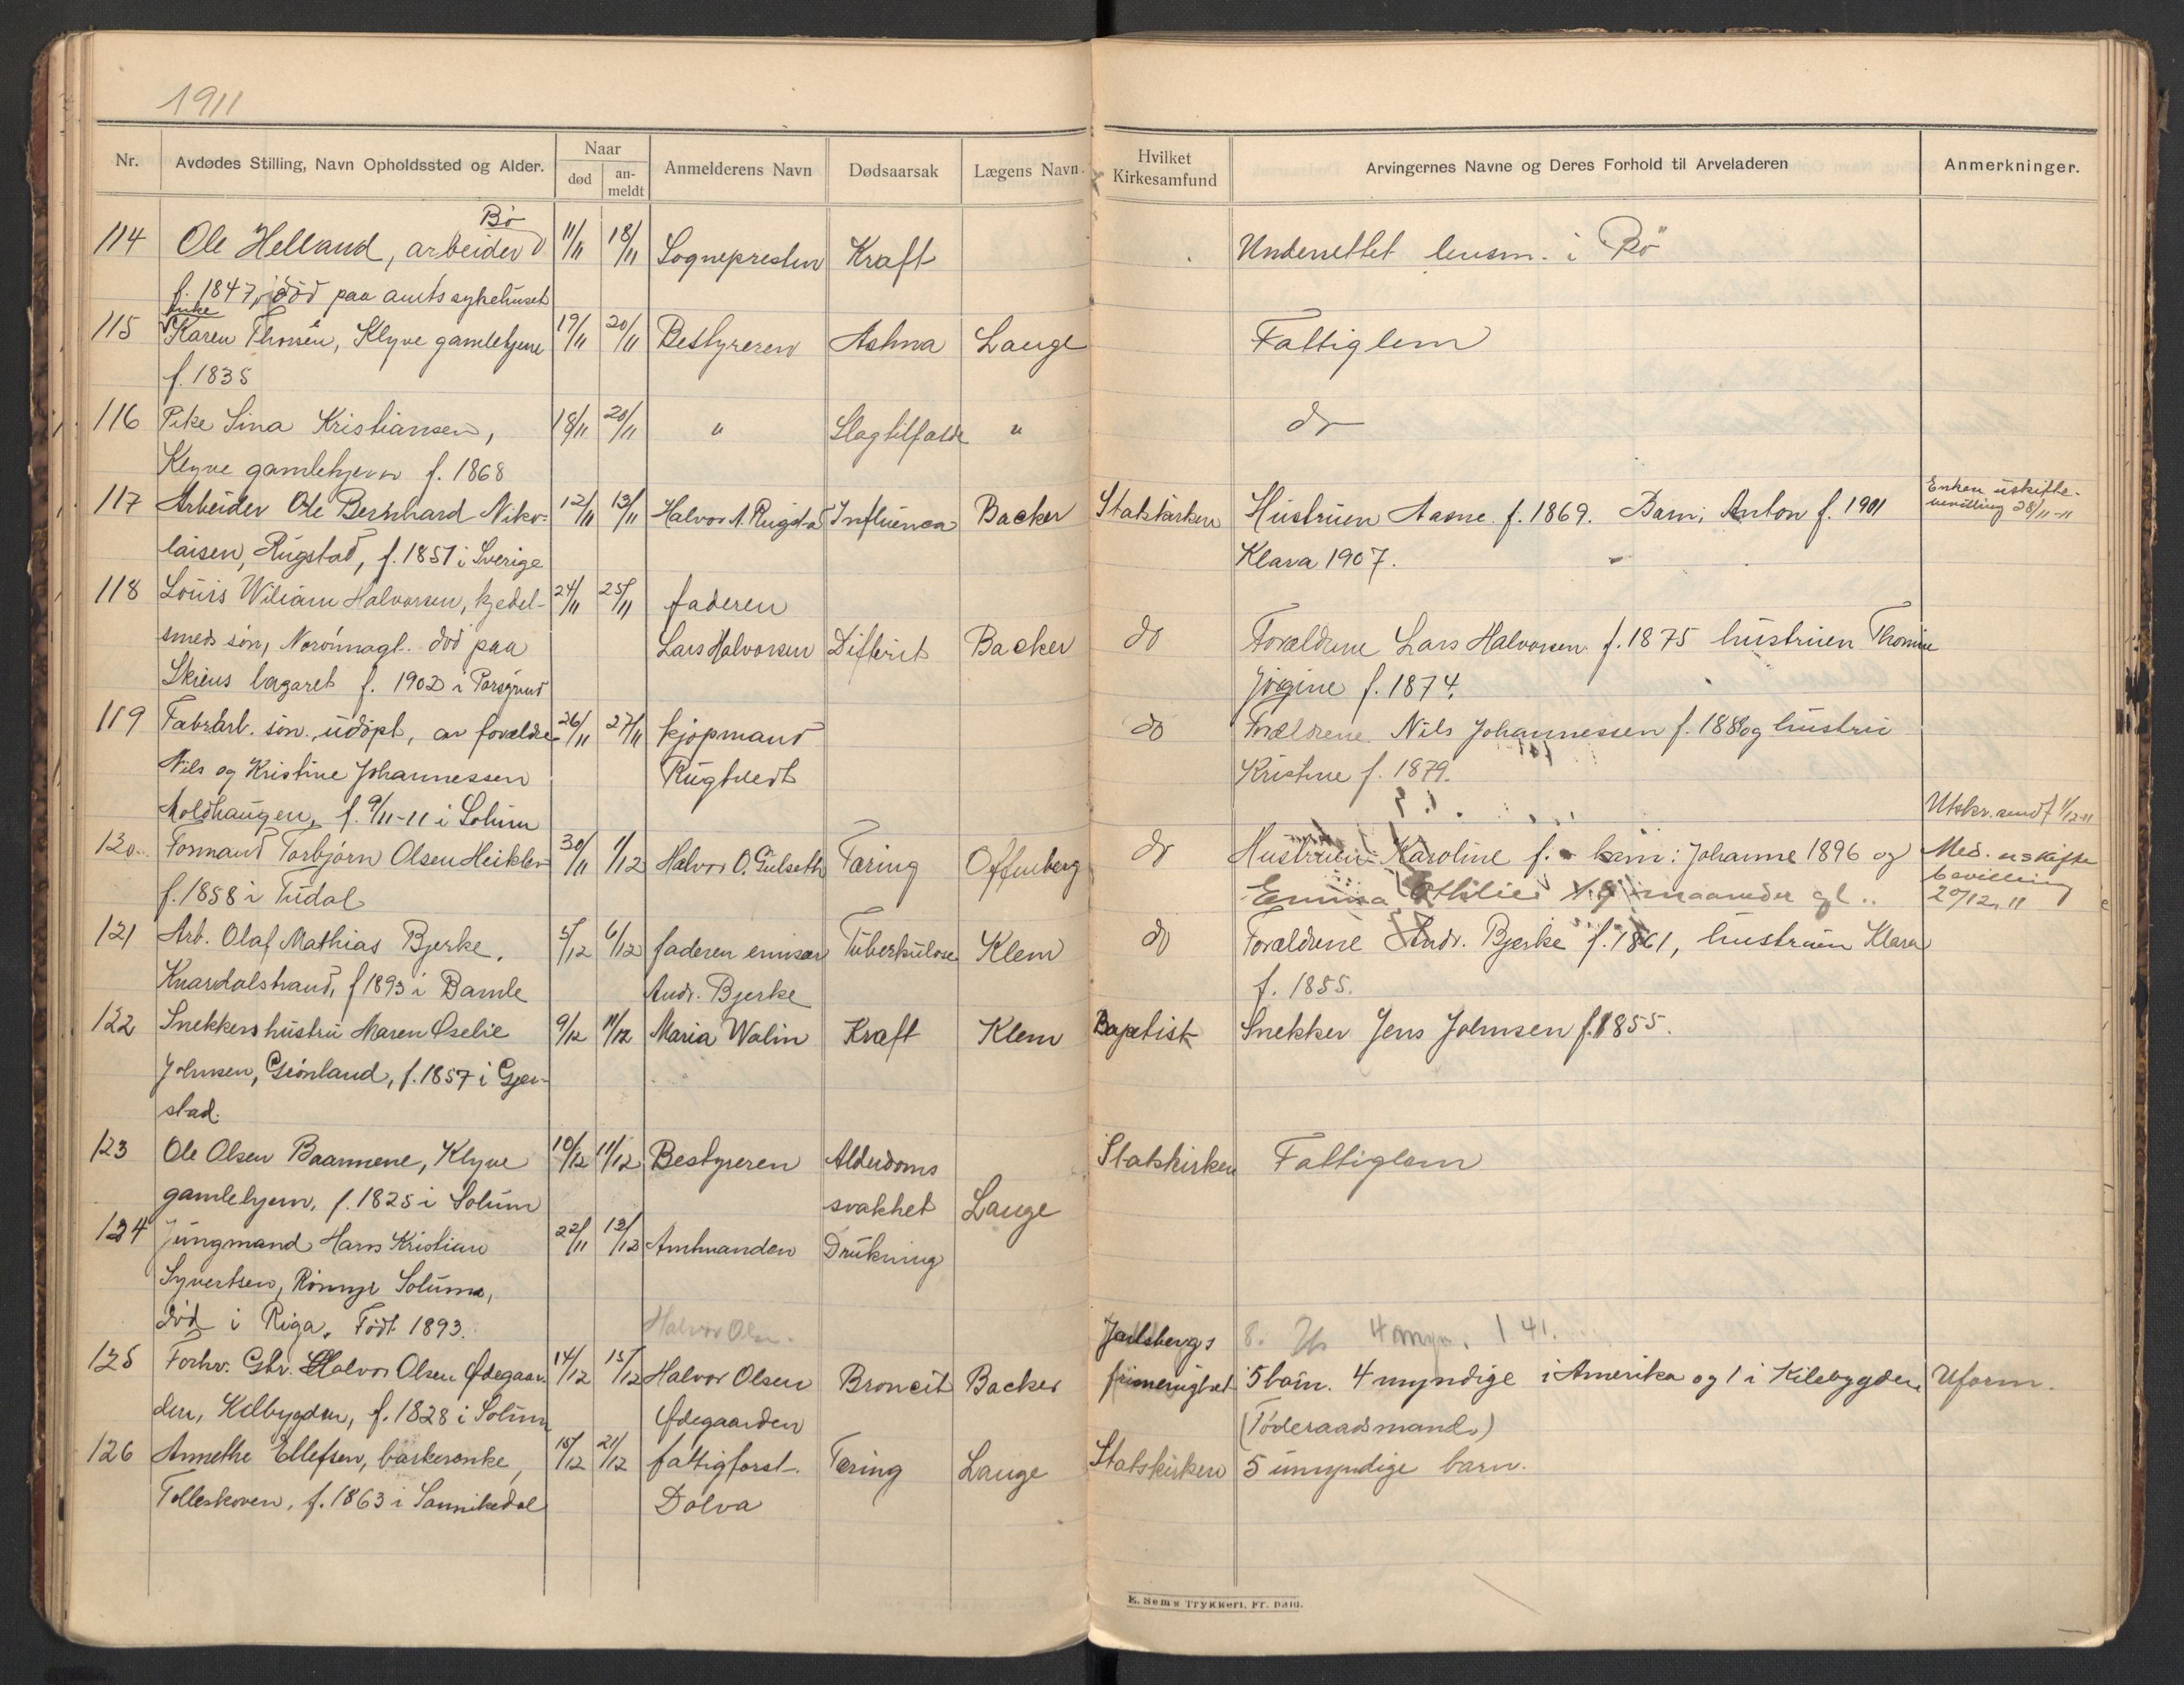 1911
Nr. Avdødes Stilling, Navn Opholdssted og Alder. Naar død an-meldt Anmelderens Navn Dødsaarsak Lægens Navn. Hvilket Kirkesamfund Arvingernes Navne og Deres Forhold til Arveladeren Anmerkninger.
Bö
114 Ole Helland, arbeider 11/11 18/11 Sognepresten Kraft Underrettet lensm. i Bö
f. 1847, død paa amtssykehuset
Enke
115 Karen Thorsen, Klyve gamlehjem 19/11 20/11 Bestyreren Astma Lange Fattiglem
f. 1835
116 Pike Sina Kristiansen, 18/11 20/11 " Slagtilfælde " do
Klyve gamlehjem f. 1868
117 Arbeider Ole Bernhard Niko- 12/11 13/11 Halvor A. Rugstad Influenca Backer Statskirken Hustruen Aasne f. 1869. Barn: Anton f. 1901 Enken uskifte-
laisen, Rugstad, f. 1851 i Sverige Klara 1907. bevilling 28/11-11
118 Louis Wiliam Halvorsen, kjedel- 24/11 25/11 faderen
smeds søn, Norönnagt. död paa Lars Halvorsen Difterit Backer do Forældrene Lars Halvorsen f. 1875 hustruen Thomine
Skiens lazaret f. 1902 i Porsgrund Jörgine f. 1874.
119 Fabrarb. søn, udöpt, av forældre 26/11 27/11 kjöpmand do Forældrene Nils Johannessen f. 1880 og hustru
Nils og Kristine Johannessen Rugtvedt Kristine f. 1879.
Moldhaugen, f. 9/11-11 i Solum Utskr. sendt 1/12-11
120 Formand Torbjørn Olsen Heikler 30/11 1/12 Halvor O. Gulseth Tæring Offenberg do Hustruen Karoline f. barn: Johanne 1896 og Med. uskifte
f. 1858 i Tudal Emma Othilie maaneder gl. bevilling
20/12. 11
121 Arb. Olaf Mathias Bjerke, 5/12 6/12 faderen emisær Tuberkulose Klem do Forældrene Andr. Bjerke f. 1861, hustruen Klara
Knardalstrand, f 1893 i Bamle Andr. Bjerke f. 1855.
122 Snekkers hustru Maren Oselie 9/12 11/12 Maria Walin Kræft Klem Baptist Snekker Jens Johnsen f. 1855.
Johnsen, Grönland, f. 1857 i Gjer-
stad.
123 Ole Olsen Baannene, Klyve 10/12 11/12 Bestyreren Alderdoms Statskirken Fattiglem
gamlehjem, f. 1825 i Solum svakhet Lange
124 Jungmand Hans Kristian 22/11 13/12 Amtmanden Drukning
Syvertsen, Rönnyi Solum,
död i Riga. Födt 1893. Halvor Olsn. Jarlsbergs 8.
125 Forhv. Gbr. Halvor Olsen Ødegaar- 14/12 15/12 Halvor Olsen Broncit Backer frimenighet 5 barn. 4 myndige i Amerika og 1 i Kilebygden, Uform.
den, Kilbygden, f. 1828 i Solum Ødegaarden (Föderaadsmand)
126 Annethe Ellefsen, barkerenke, 15/12 21/12 fattigforst. Tæring Lange Statskirken 5 umyndige barn.
Tolleskoven, f. 1863 i Sannikedal Dolva
E. Sem's Trykkeri, Fr.hald.